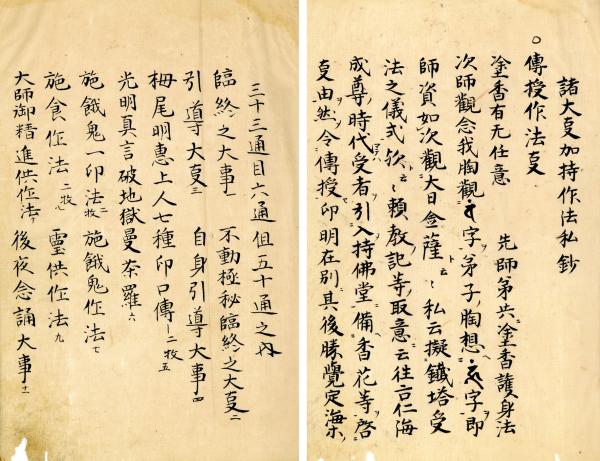 諸大叓加持作法私鈔
○傳授作法叓
塗香有无任意 先師弟共ニ塗香護身法
次師觀念我胸觀字ヲ弟子ノ胸想字ヲ即
師資如次觀大日金薩ト云々私云擬鐵塔受
法之儀式欤云々頼教記等ノ取意云往古仁海
成尊ノ時代受者ヲ引入持佛堂ニ備香花等ヲ啓
叓由然令傳授印明在別其後勝覺定海
三十三通目六通但五十通之内
臨終之大事一 不動極秘臨終之大叓二
引導大叓三 自身引導大事四
栂尾明惠上人七種印口傳二枚五
光明真言破地獄曼荼羅六
施餓鬼一印法二枚 施餓鬼作法七
施食作法二枚 霊供作法九
大師御精進供作法十 後夜念誦大事十一